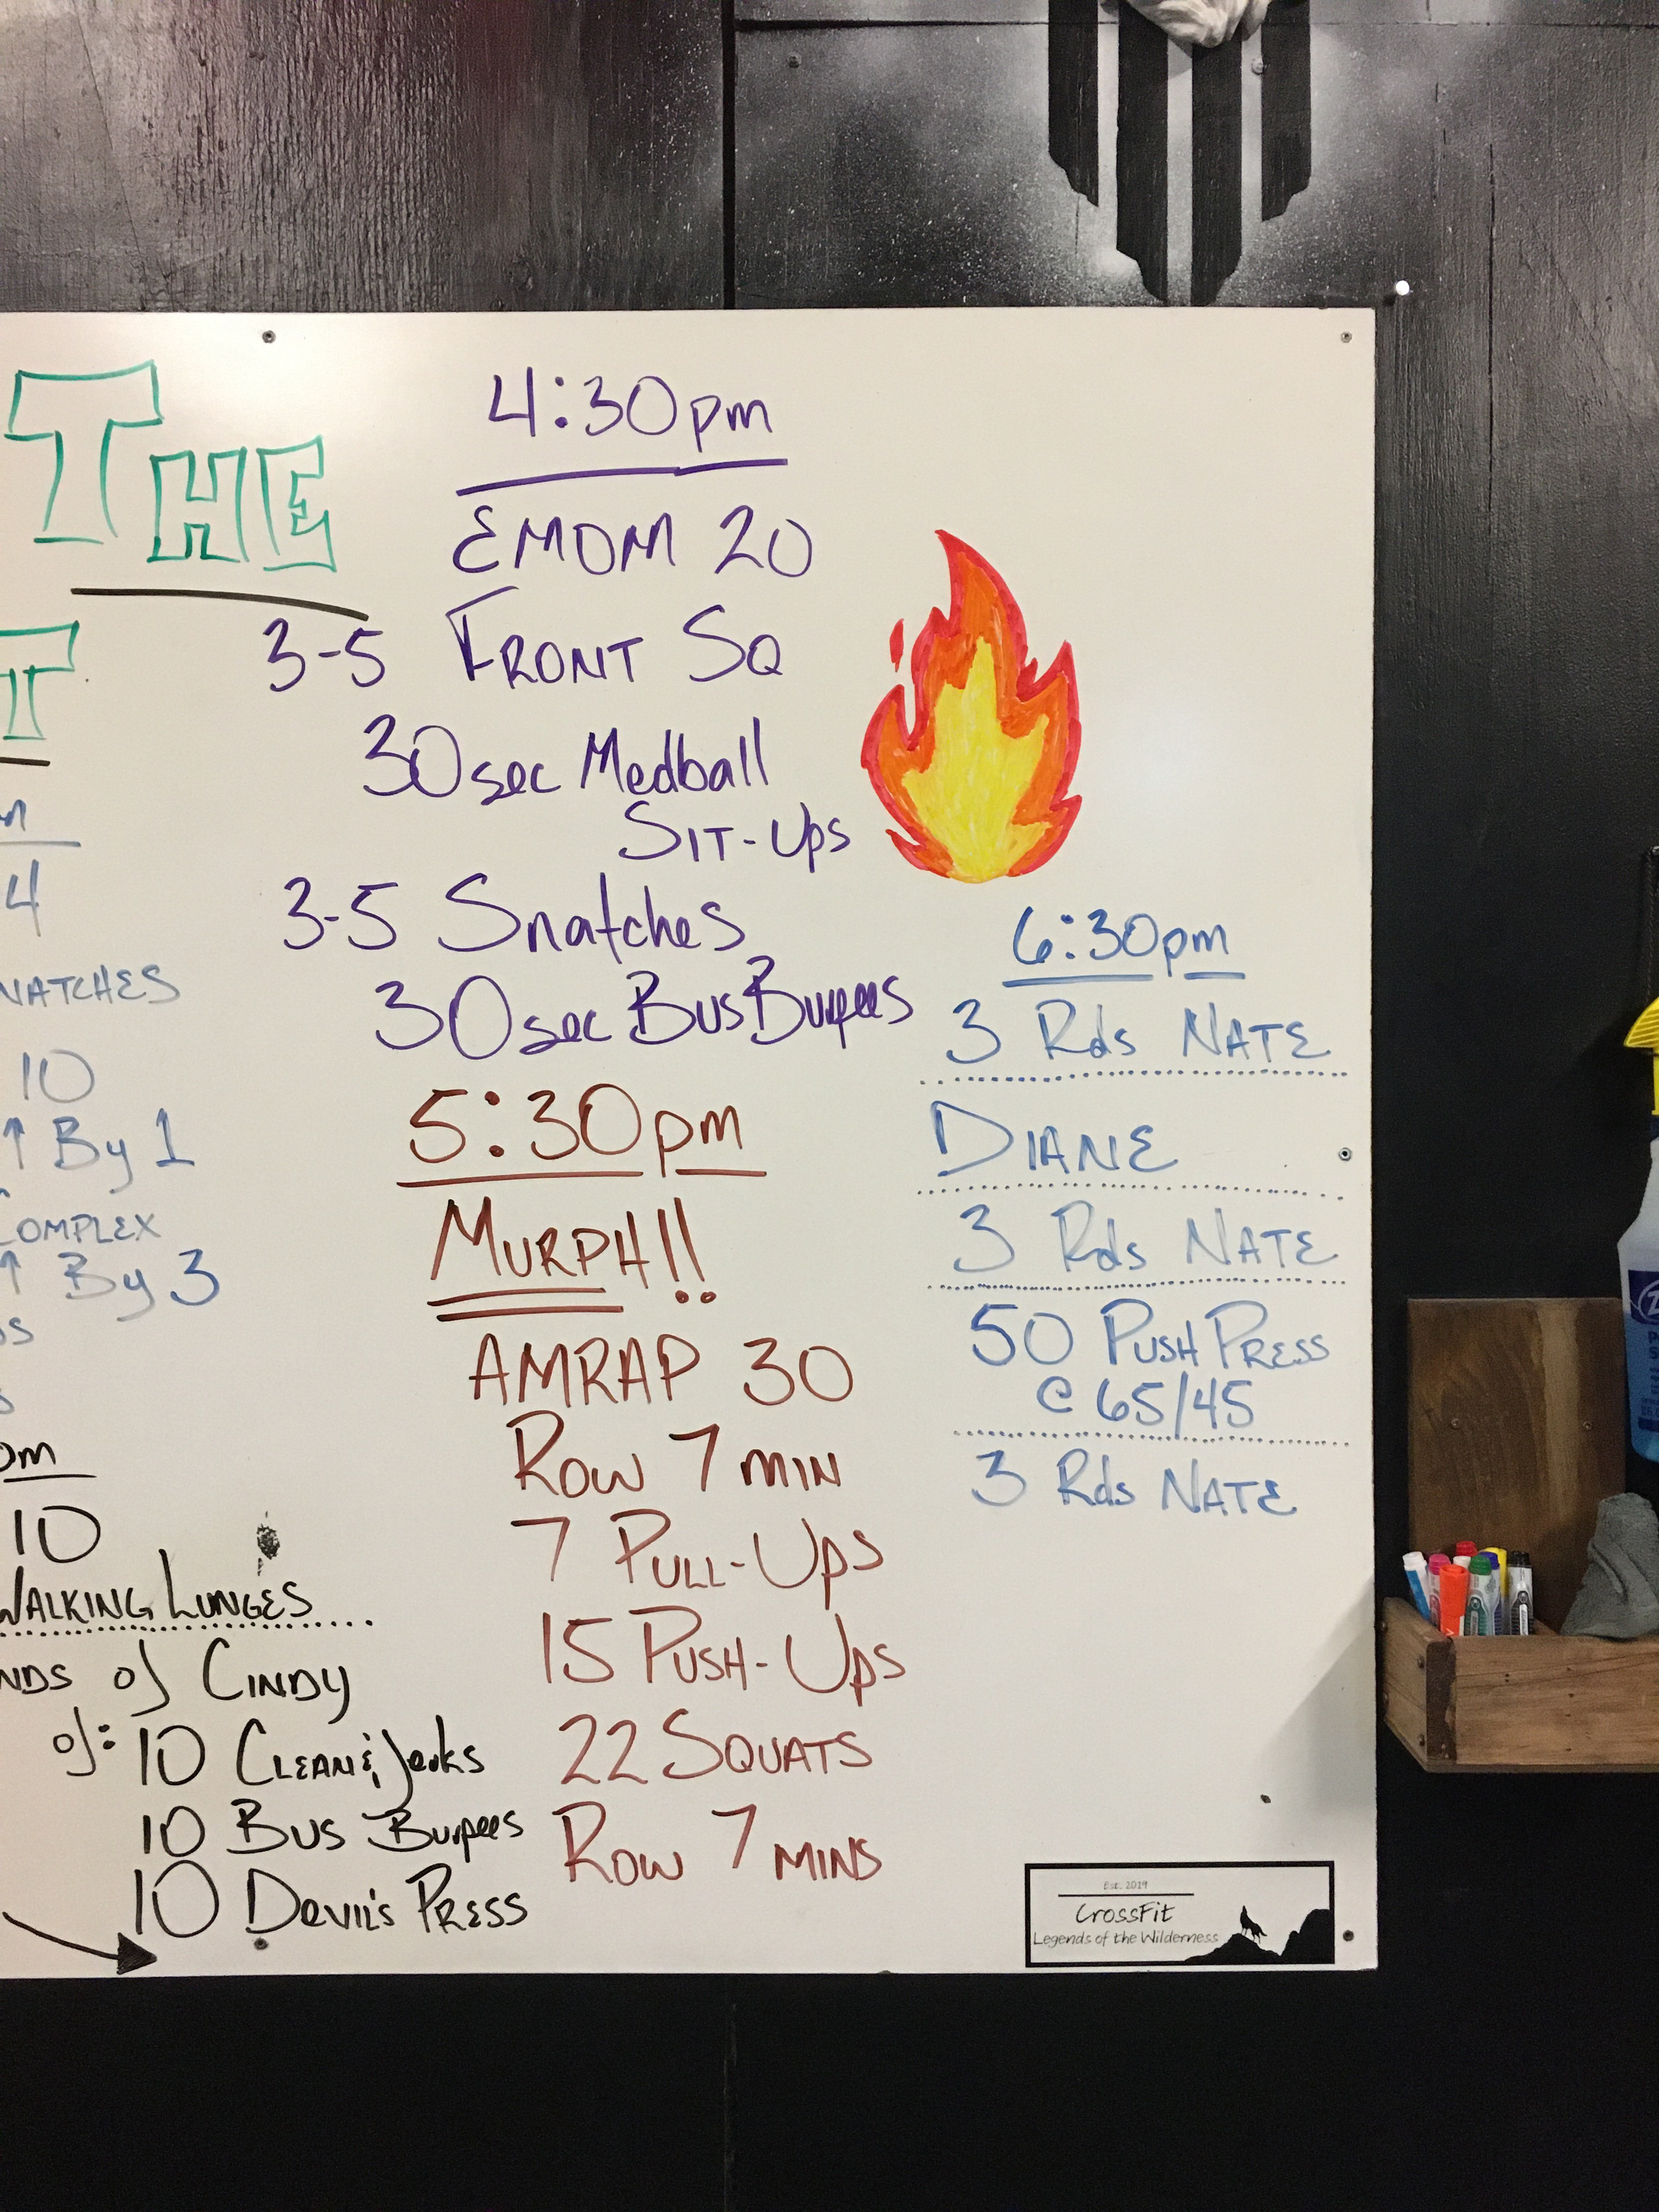 THE
T
4
NATCHES
10
↑ By 1
COMPLEX
↑ By 3
10
WALKING LUNGES
NDS of CINDY
of: 10 CLEAN & Jerks
10 BUS Burpees
10 DEVIL'S PRESS
4:30pm
EMOM 20
3-5 FRONT SQ
30sec Medball
SIT-Ups
3-5 Snatches
30sec BUS Burpees
5:30pm
MURPH!!
AMRAP 30
ROW 7 MIN
7 PULL-UPS
15 PUSH-UPS
22 SQUATS
ROW 7 MINS
6:30pm
3 Rds NATE
DIANE
3 Rds NATE
50 PUSH PRESS
@ 65/45
3 Rds NATE
Est. 2019
CrossFit
Legends of the Wilderness